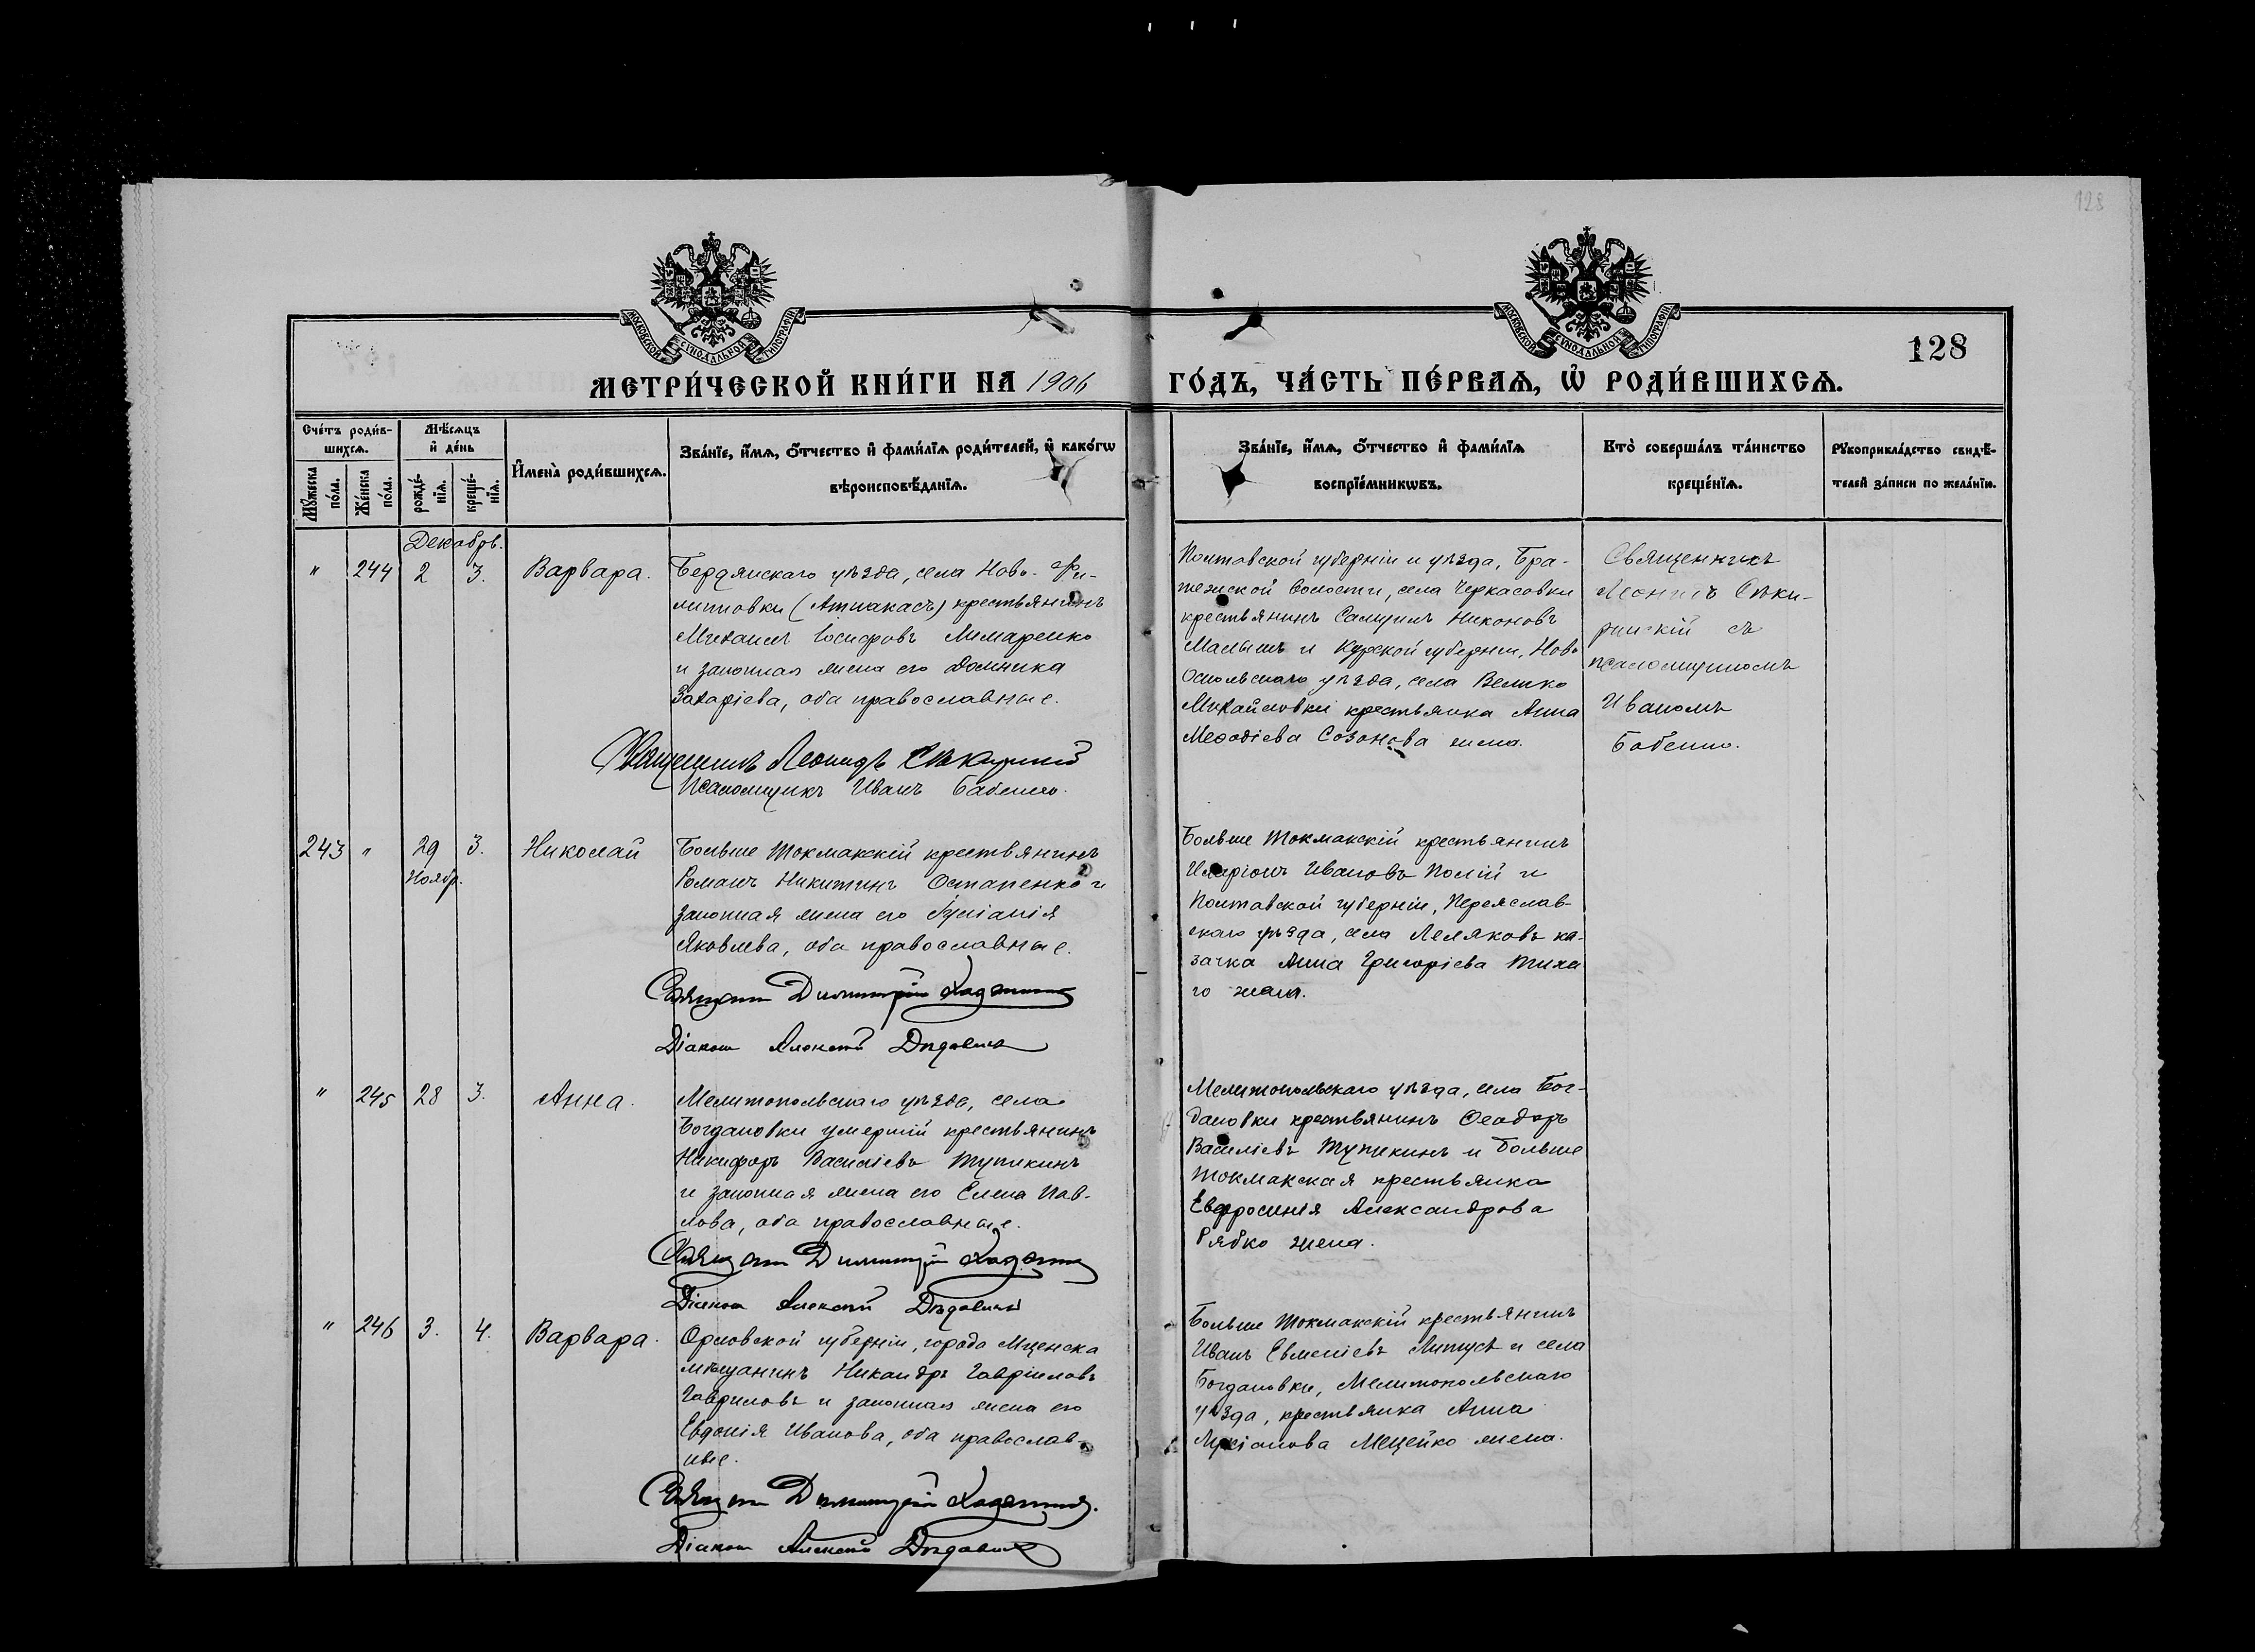 128
МОСКОВСКОЙ СУНОДАЛЬНОЙ ТИПОГРАФІИ
МОСКОВСКОЙ СУНОДАЛЬНОЙ ТИПОГРАФІИ
128
МЕТРИ́ЧЕСКОЙ КНИ́ГИ НА 1906 ГО́ДЪ, ЧА́СТЬ ПЕ́РВАѦ, Ѡ҆ РОДИ́ВШИХСѦ.
Сче́тъ роди́в-
шихсѧ.
Мꙋ́жеска по́ла.
Же́нска по́ла.
Мѣ́сѧцъ
и҆ де́нь
рожде́-
нїѧ.
креще́-
нїѧ.
И҆мена̀ роди́вшихсѧ.
Зва́нїе, и҆́мѧ, о҆́тчество и҆ фами́лїѧ роди́телей, и҆ како́гѡ
вѣроисповѣ́данїѧ.
Зва́нїе, и҆́мѧ, о҆́тчество и҆ фами́лїѧ
воспрїе́мникѡвъ.
Кто̀ соверша́лъ та́инство
креще́нїѧ.
Рꙋкоприкла́дство свидѣ́-
телей за́писи по жела́нїю.
Декабрь.
" 244 2 3. Варвара.
Бердянскаго уѣзда, села Ново-Фи-
липповки (Атмакасъ) крестьянинъ
Михаилъ Іосифовъ Лимаренко
и законная жена его Домника
Захаріева, оба православные.
Священникъ Леонидъ Сѣкиринскій
Псаломщикъ Иванъ Бабенко.
Полтавской губерніи и уѣзда, Бра-
тежской волости, села Черкасовки
крестьянинъ Самуилъ Никоновъ
Малышъ и Курской губерніи, Ново
Оскольскаго уѣзда, села Велико
Михайловки крестьянка Анна
Меѳодіева Созонова жена.
Священникъ
Леонидъ Сѣки-
ринскій съ
псаломщикомъ
Иваномъ
Бабенко.
243 " 29 3. Николай
Ноябр.
Больше Токмакскій крестьянинъ
Романъ Никитинъ Остапенко и
законная жена его
Яковлева, оба православные.
Священникъ Димитрій
Діаконъ Алексій
Больше Токмакскій крестьянинъ
Иларіонъ Ивановъ Полій и
Полтавской губерніи, Переяслав-
скаго уѣзда, села Леляковъ ка-
зачка Анна Григоріева Тиха
го жена.
" 245 28 3. Анна.
Мелитопольскаго уѣзда, села
Богдановки умершій крестьянинъ
Никифоръ Василіевъ Тупикинъ
и законная жена его Елена Пав-
лова, оба православные.
Священникъ Димитрій
Діаконъ Алексій
Мелитопольскаго уѣзда, села Бог-
дановки крестьянинъ Ѳеодоръ
Василіевъ Тупикинъ и Больше
Токмакская крестьянка
Евфросинія Александрова
Рябко жена.
" 246 3. 4. Варвара.
Орловской губерніи, города Мценска
мѣщанинъ Никандръ Гавріиловъ
Гавриловъ и законная жена его
Евдокія Иванова, оба православ-
ные.
Священникъ Димитрій
Діаконъ Алексій
Больше Токмакскій крестьянинъ
Иванъ Евменіевъ и села
Богдановки, Мелитопольскаго
уѣзда, крестьянка Анна
Лукіанова Мецейко жена.